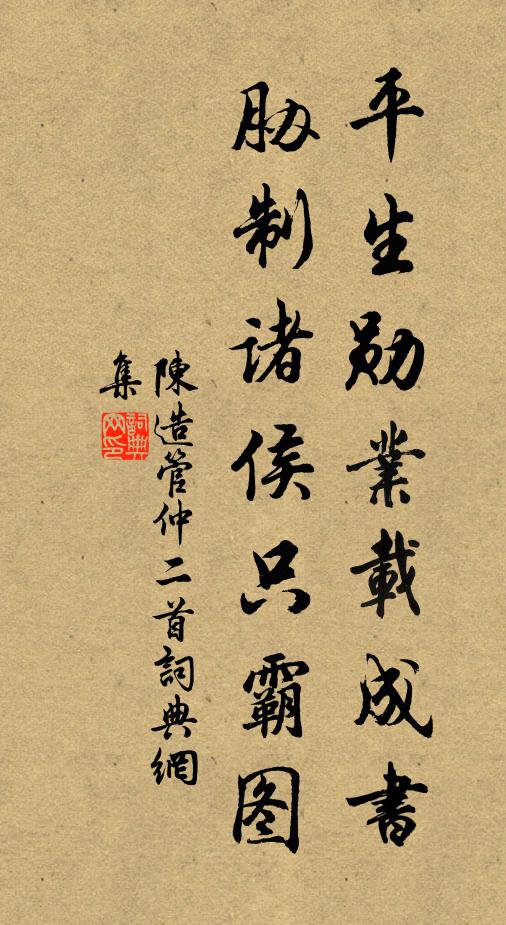 平生勋業載成書
胁制诸侯只霸图
陳造管仲二首詞典網
集
詞典網印